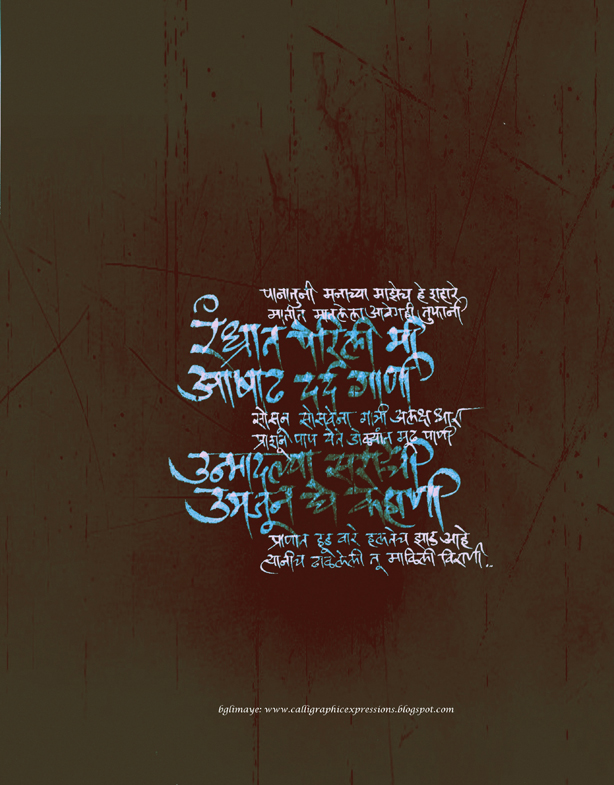 पानातुनी मनाच्या माझेच हे शहारे
मातीत मावलेला आवेगही तुफानी
रंध्रात पेरिली मी
आषाढ दर्द गाणी
सोसून सोसवेना गात्री अलक्ष धारा
प्राशून पाप येते डोळ्यांत मूढ पाणी
उन्मादल्या सरींची
उमजून घे कहाणी
प्राणांत वारे हलतेच झाड आहे
त्यानीच तू विराणी..
bglimaye: www.calligraphicexpressions.blogspot.com